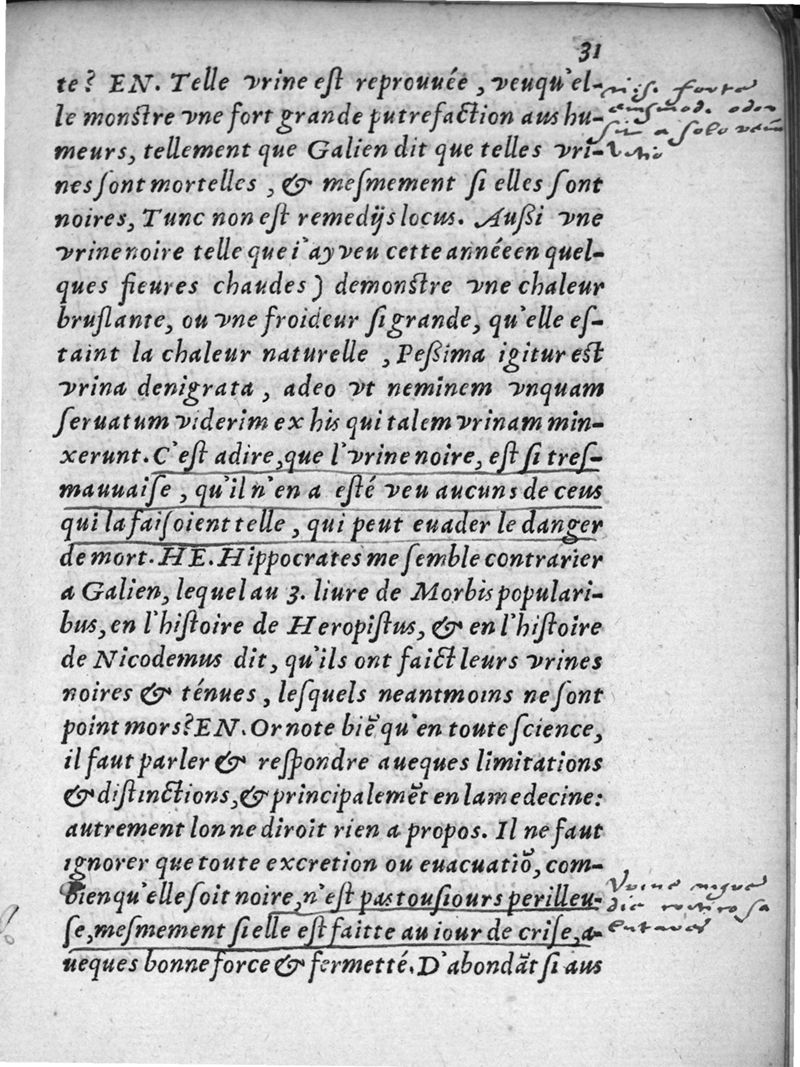 31
te? EN. Telle vrine est reprouuée, veuqu'el-
le monstre vne fort grande putrefaction aus hu-
meurs, tellement que Galien dit que telles vri-
nes sont mortelles, & mesmement si elles sont
noires, Tunc non est remedijs locus. Außi vne
vrine noire telle que i'ay veu cette année en quel-
ques fieures chaudes) demonstre vne chaleur
bruslante, ou vne froideur si grande, qu'elle es-
taint la chaleur naturelle, Peßima igitur est
vrina denigrata, adeo vt neminem vnquam
seruatum viderim ex his qui talem vrinam min-
xerunt. C'est adire, que l'vrine noire, est si tres-
mauuaise, qu'il n'en a esté veu aucuns de ceus
qui la faisoient telle, qui peut euader le danger
de mort. HE. Hippocrates me semble contrarier
a Galien, lequel au 3. liure de Morbis populari-
bus, en l'histoire de Heropistus, & en l'histoire
de Nicodemus dit, qu'ils ont faict leurs vrines
noires & ténues, lesquels neantmoins ne sont
point mors? EN. Or note biē qu'en toute science,
il faut parler & respondre aueques limitations
& distinctions, & principalemēt en la medecine:
autrement lon ne diroit rien a propos. Il ne faut
ignorer que toute excretion ou euacuatiō, com-
bien qu'elle soit noire, n'est pas tousiours perilleu-
se, mesmement si elle est faitte au iour de crise, a-
ueques bonne force & fermetté. D'abondāt si aus
nisi forte
eiusmod. odor
sit a solo
Vrine